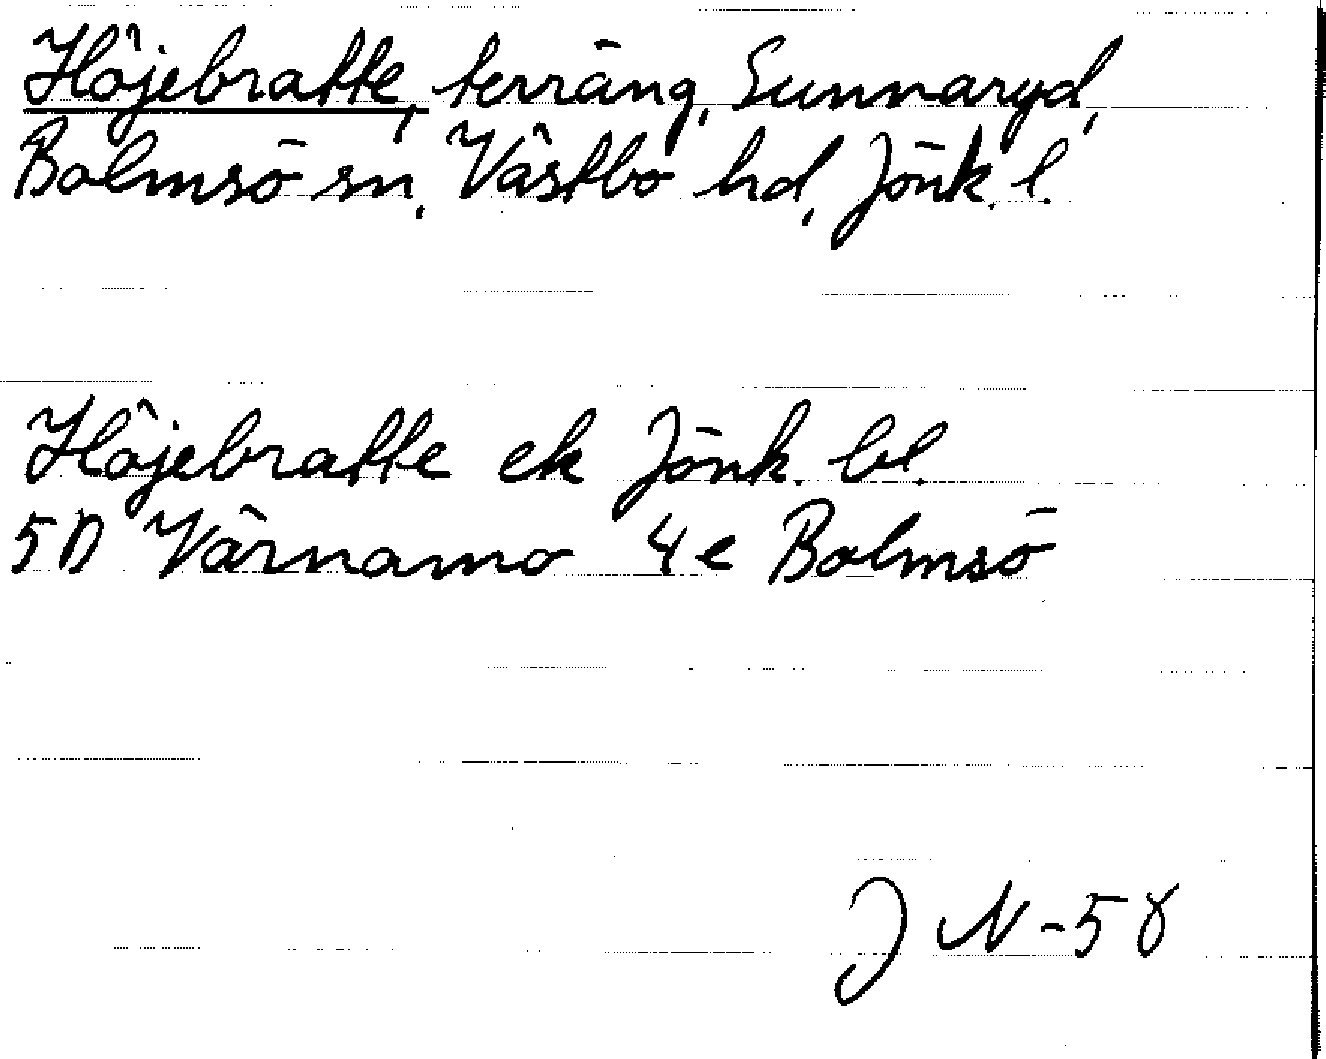 Höjebratte, terräng, Sunnaryd,
Bolmsö sn, Västbo hd, Jönk. l.
Höjebratte ek Jönk. bl.
5D Värnamo 4e Bolmsö
J N-58